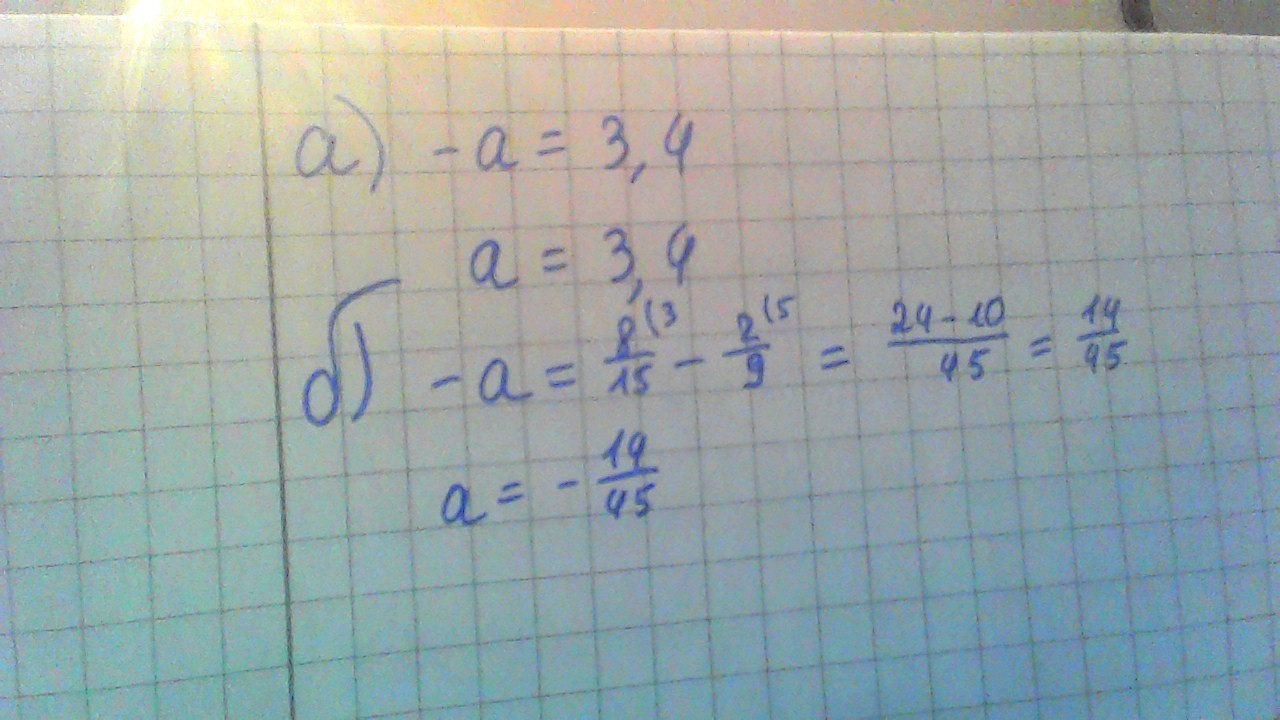 а) -a = 3,4
a = 3,4
б) -a = 8/15 (3 - 2/9 (5 = 24-10/45 = 14/45
a = - 14/45